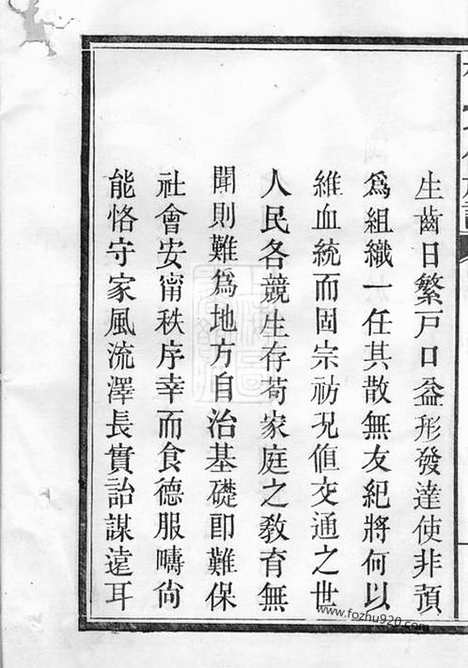 生齒日繁戶口益形發達使非預
爲組織一任其散無友紀將何以
維血統而固宗祊況值交通之世
人民各競生存苟家庭之敎育無
聞則難爲地方自治基礎卽難保
社會安甯秩序幸而食德服疇尙
能恪守家風流澤長實詒謀遠耳
www.fozhu920.com